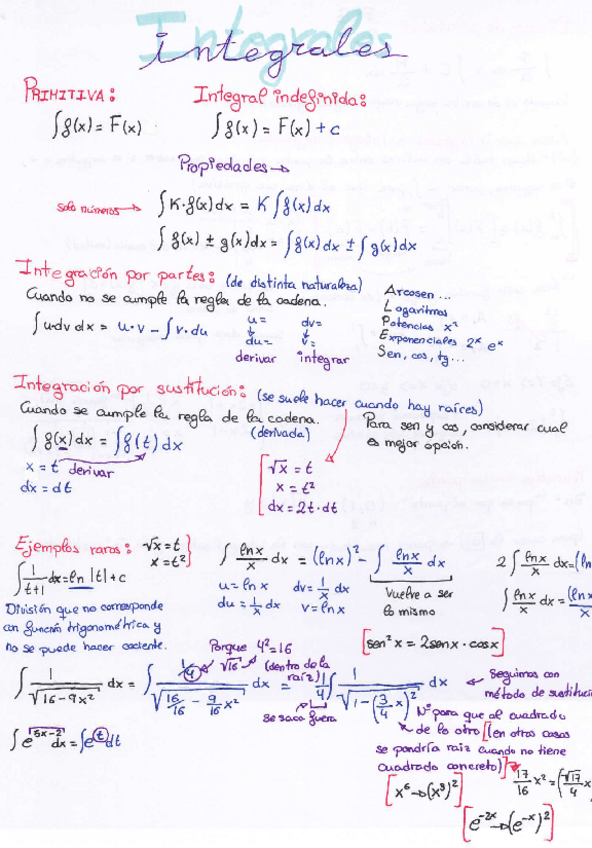 Integrales
integrales
PRIMITIVA: Integral indefinida:
∫f(x) = F(x) ∫f(x) = F(x) + c
Propiedades →
Solo números → ∫K·f(x) dx = K ∫f(x) dx
∫f(x) ± g(x) dx = ∫f(x) dx ± ∫g(x) dx
Integración por partes: (de distinta naturaleza)
Cuando no se cumple la regla de la cadena.
∫u·dv dx = u·v - ∫v·du
u= dv=
↓ ↓
du= v=
derivar integrar
Arcosen ...
Logaritmos
Potencias x²
Exponenciales 2ˣ eˣ
Sen, cos, tg...
Integración por sustitución: (se suele hacer cuando hay raíces)
Cuando se cumple la regla de la cadena.
(derivada)
Para sen y cos, considerar cual
es mejor opción.
∫f(x) dx = ∫f(t) dx
x = t derivar
dx = dt
√x = t
x = t²
dx = 2t·dt
Ejemplos raros: √x = t
x = t²
∫ 1/(t+1) dx = ln |t| + c
División que no corresponde
con función trigonométrica y
no se puede hacer cociente.
∫ lnx/x dx = (lnx)² - ∫ lnx/x dx
u = ln x dv = 1/x dx
du = 1/x dx v = ln x
Vuelve a ser
lo mismo
2 ∫ lnx/x dx = (ln
∫ lnx/x dx = (lnx
[sen²x = 2senx·cosx]
Porque 4² = 16
√16 (dentro de la
raíz)
∫ 1/√(16-9x²) dx = ∫ (1/4)/√(16/16 - 9/16 x²) dx = 1/4 ∫ 1/√(1-(3/4 x)²) dx
Se saca fuera
← Seguimos con
método de sustituci
Nº para que al cuadrado
de lo otro [(en otros casos
se pondría raíz cuando no tiene
cuadrado concreto)]
∫e^√(5x-2) dx = ∫e^t dt
17/16 x² = (√17/4 x
[x⁶ → (x³)²]
[e⁻²ˣ → (e⁻ˣ)²]